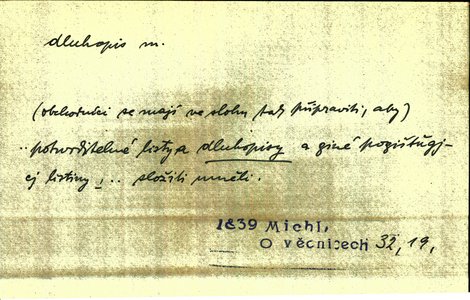 dluhopis m.
(obchodníci se mají ve slohu tak připraviti, aby)
..potvrditelné listy a dluhopisy a giné pogišťugj-
cj listiny !.. složiti uměli.
1839 Michl,
O věcnicech 32, 19,